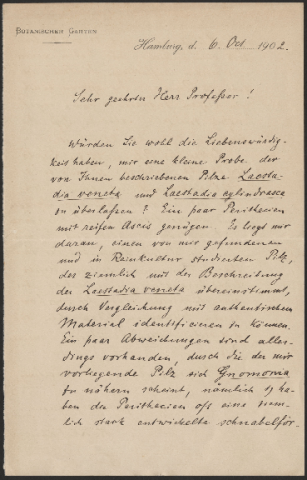 BOTANISCHER GARTEN
Hamburg, d. 6. Oct 1902.
Sehr geehrter Herr Professor!
Würden Sie wohl die Liebenswürdig-
keit haben, mir eine kleine Probe der
von Ihnen beschriebenen Pilze Laesta-
dia veneta und Laestadia cylindrasca
zu überlassen? Ein paar Perithecien
mit reifen Ascis genügen. Es liegt mir
daran, einen von mir gefundenen
und in Reinkultur studierten Pilz,
der ziemlich mit der Beschreibung
der Laestadia veneta übereinstimmt,
durch Vergleichung mit authentischem
Material identificieren zu können.
Ein paar Abweichungen sind aller-
dings vorhanden, durch die der mir
vorliegende Pilz sich Gnomonia
zu nähern scheint, nämlich 1) ha-
ben die Perithecien oft eine ziem-
lich stark entwickelte schnabelför-